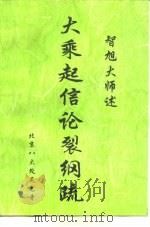 智旭大师述
大乘起信论裂纲疏
北京八大处